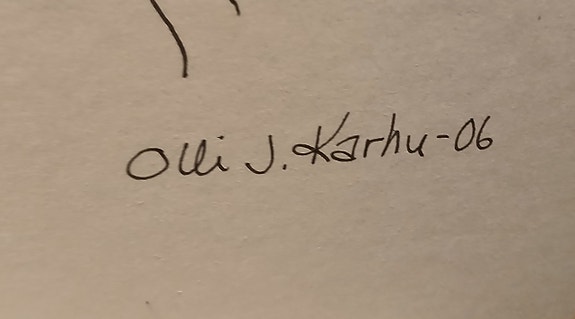 Olli J. Karhu-06